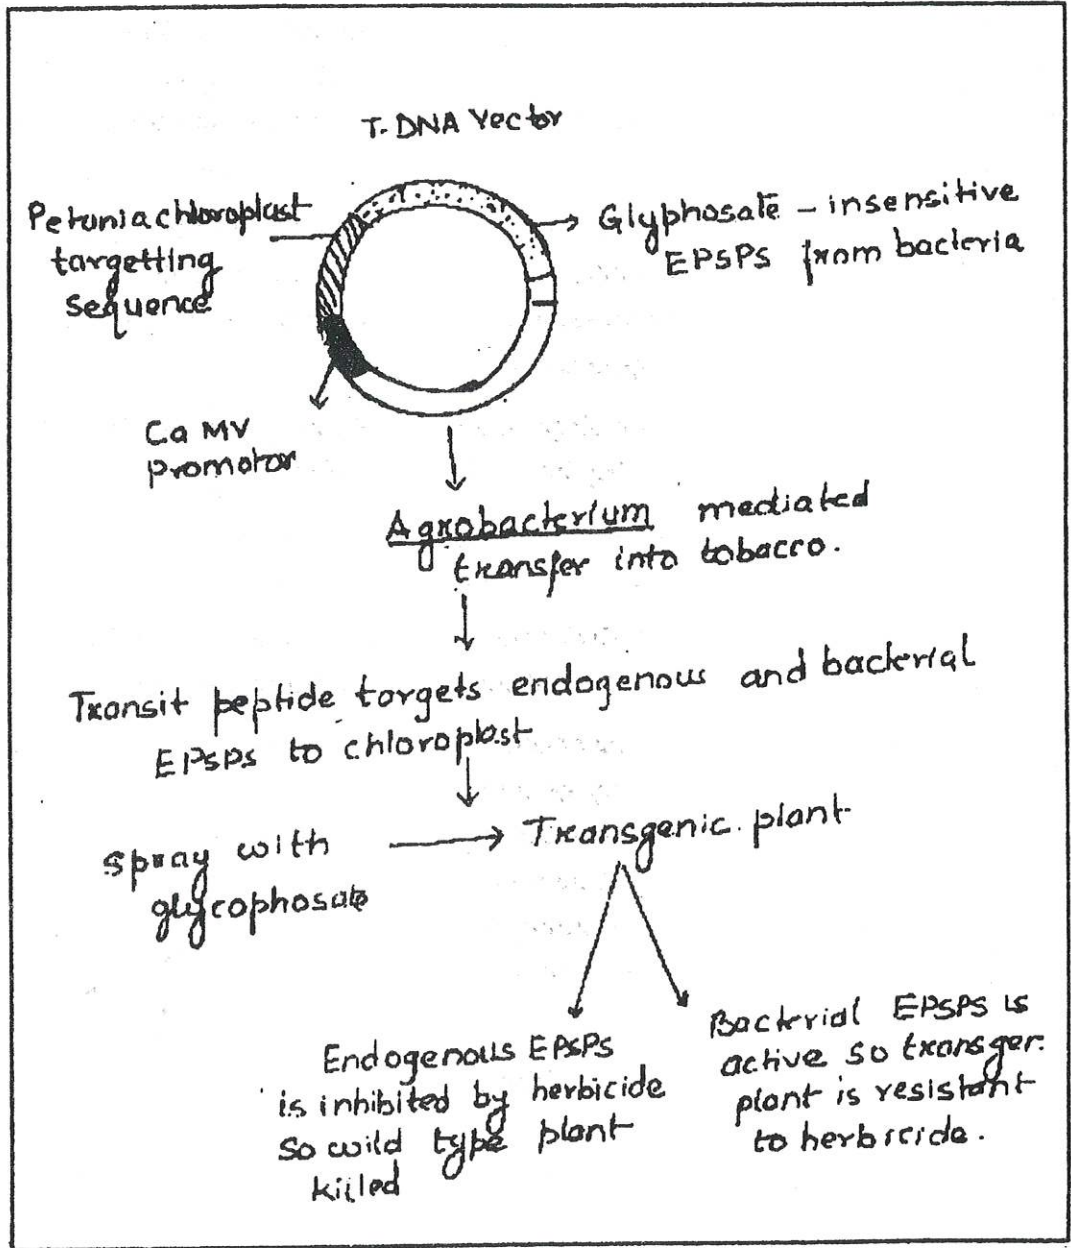 T-DNA Vector
Petunia chloroplast
targetting
sequence
Glyphosate - insensitive
EPSPS from bacteria
Ca MV
promotor
Agrobacterium mediated
transfer into tobacco.
Transit peptide targets endogenous and bacterial
EPSPS to chloroplast
Spray with
glycophosate
Transgenic plant
Endogenous EPSPs
is inhibited by herbicide
so wild type plant
killed
Bacterial EPSPS is
active so transger.
plant is resistant
to herbicide.